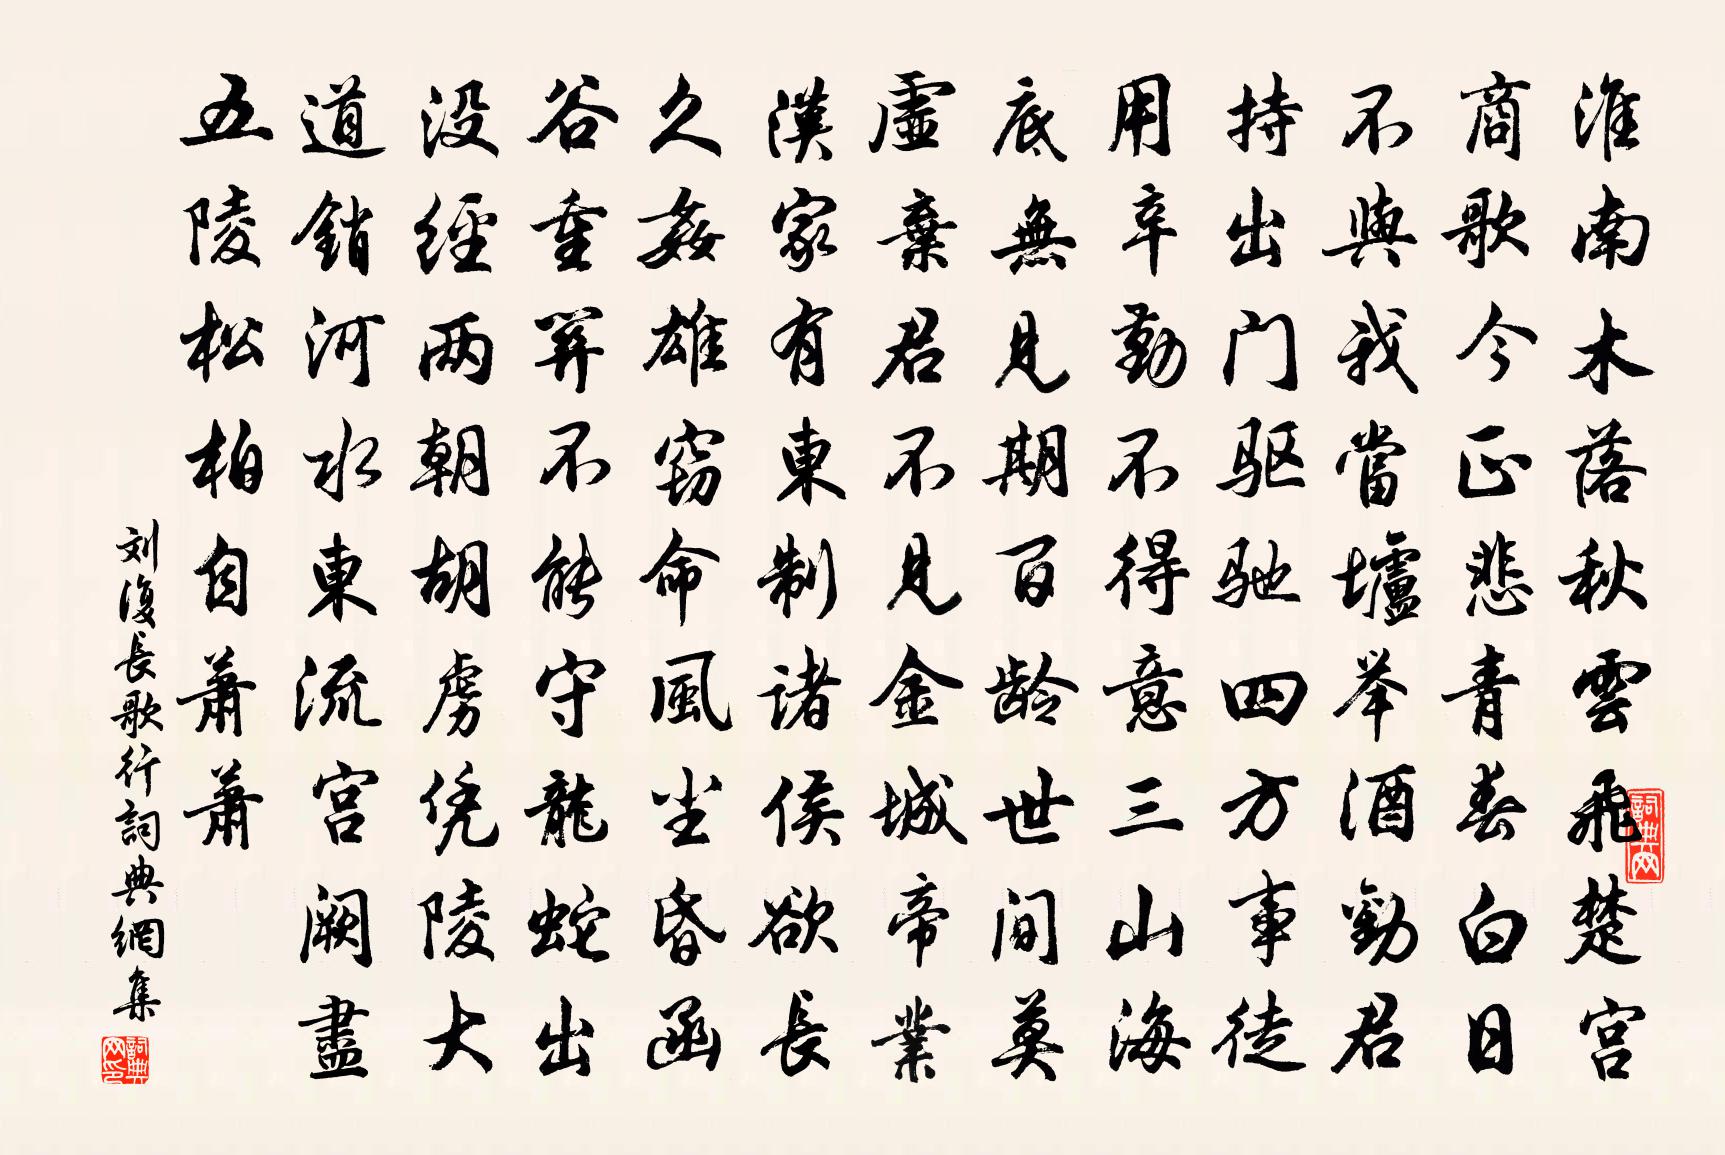 淮南木落秋雲飛楚宮
商歌今正悲青春白日
不與我當壚举酒勸君
持出门驱驰四方事徒
用辛勤不得意三山海
底無見期百龄世间莫
虛棄君不見金城帝業
漢家有東制诸侯欲長
久姦雄窃命風尘昏函
谷重關不能守龍蛇出
没經两朝胡虏凭陵大
道銷河水東流宮阙盡
五陵松柏自蕭蕭
刘復長歌行詞典網集
詞典网
詞典网印